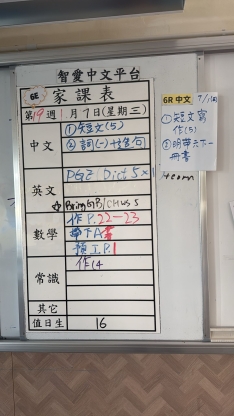 智愛中文平台
6E
家課表
第19週 1月7日(星期三)
中文
①短文(5)
②詞(一)+造句
英文
PGE Dict 5x
Bring GB/CH U5 5
數學
作P.22-23
作下A書
預工P.1
常識
作14
其它
值日生 16
6R 中文
①短文寫
作(5)
②明帶六下一
冊書